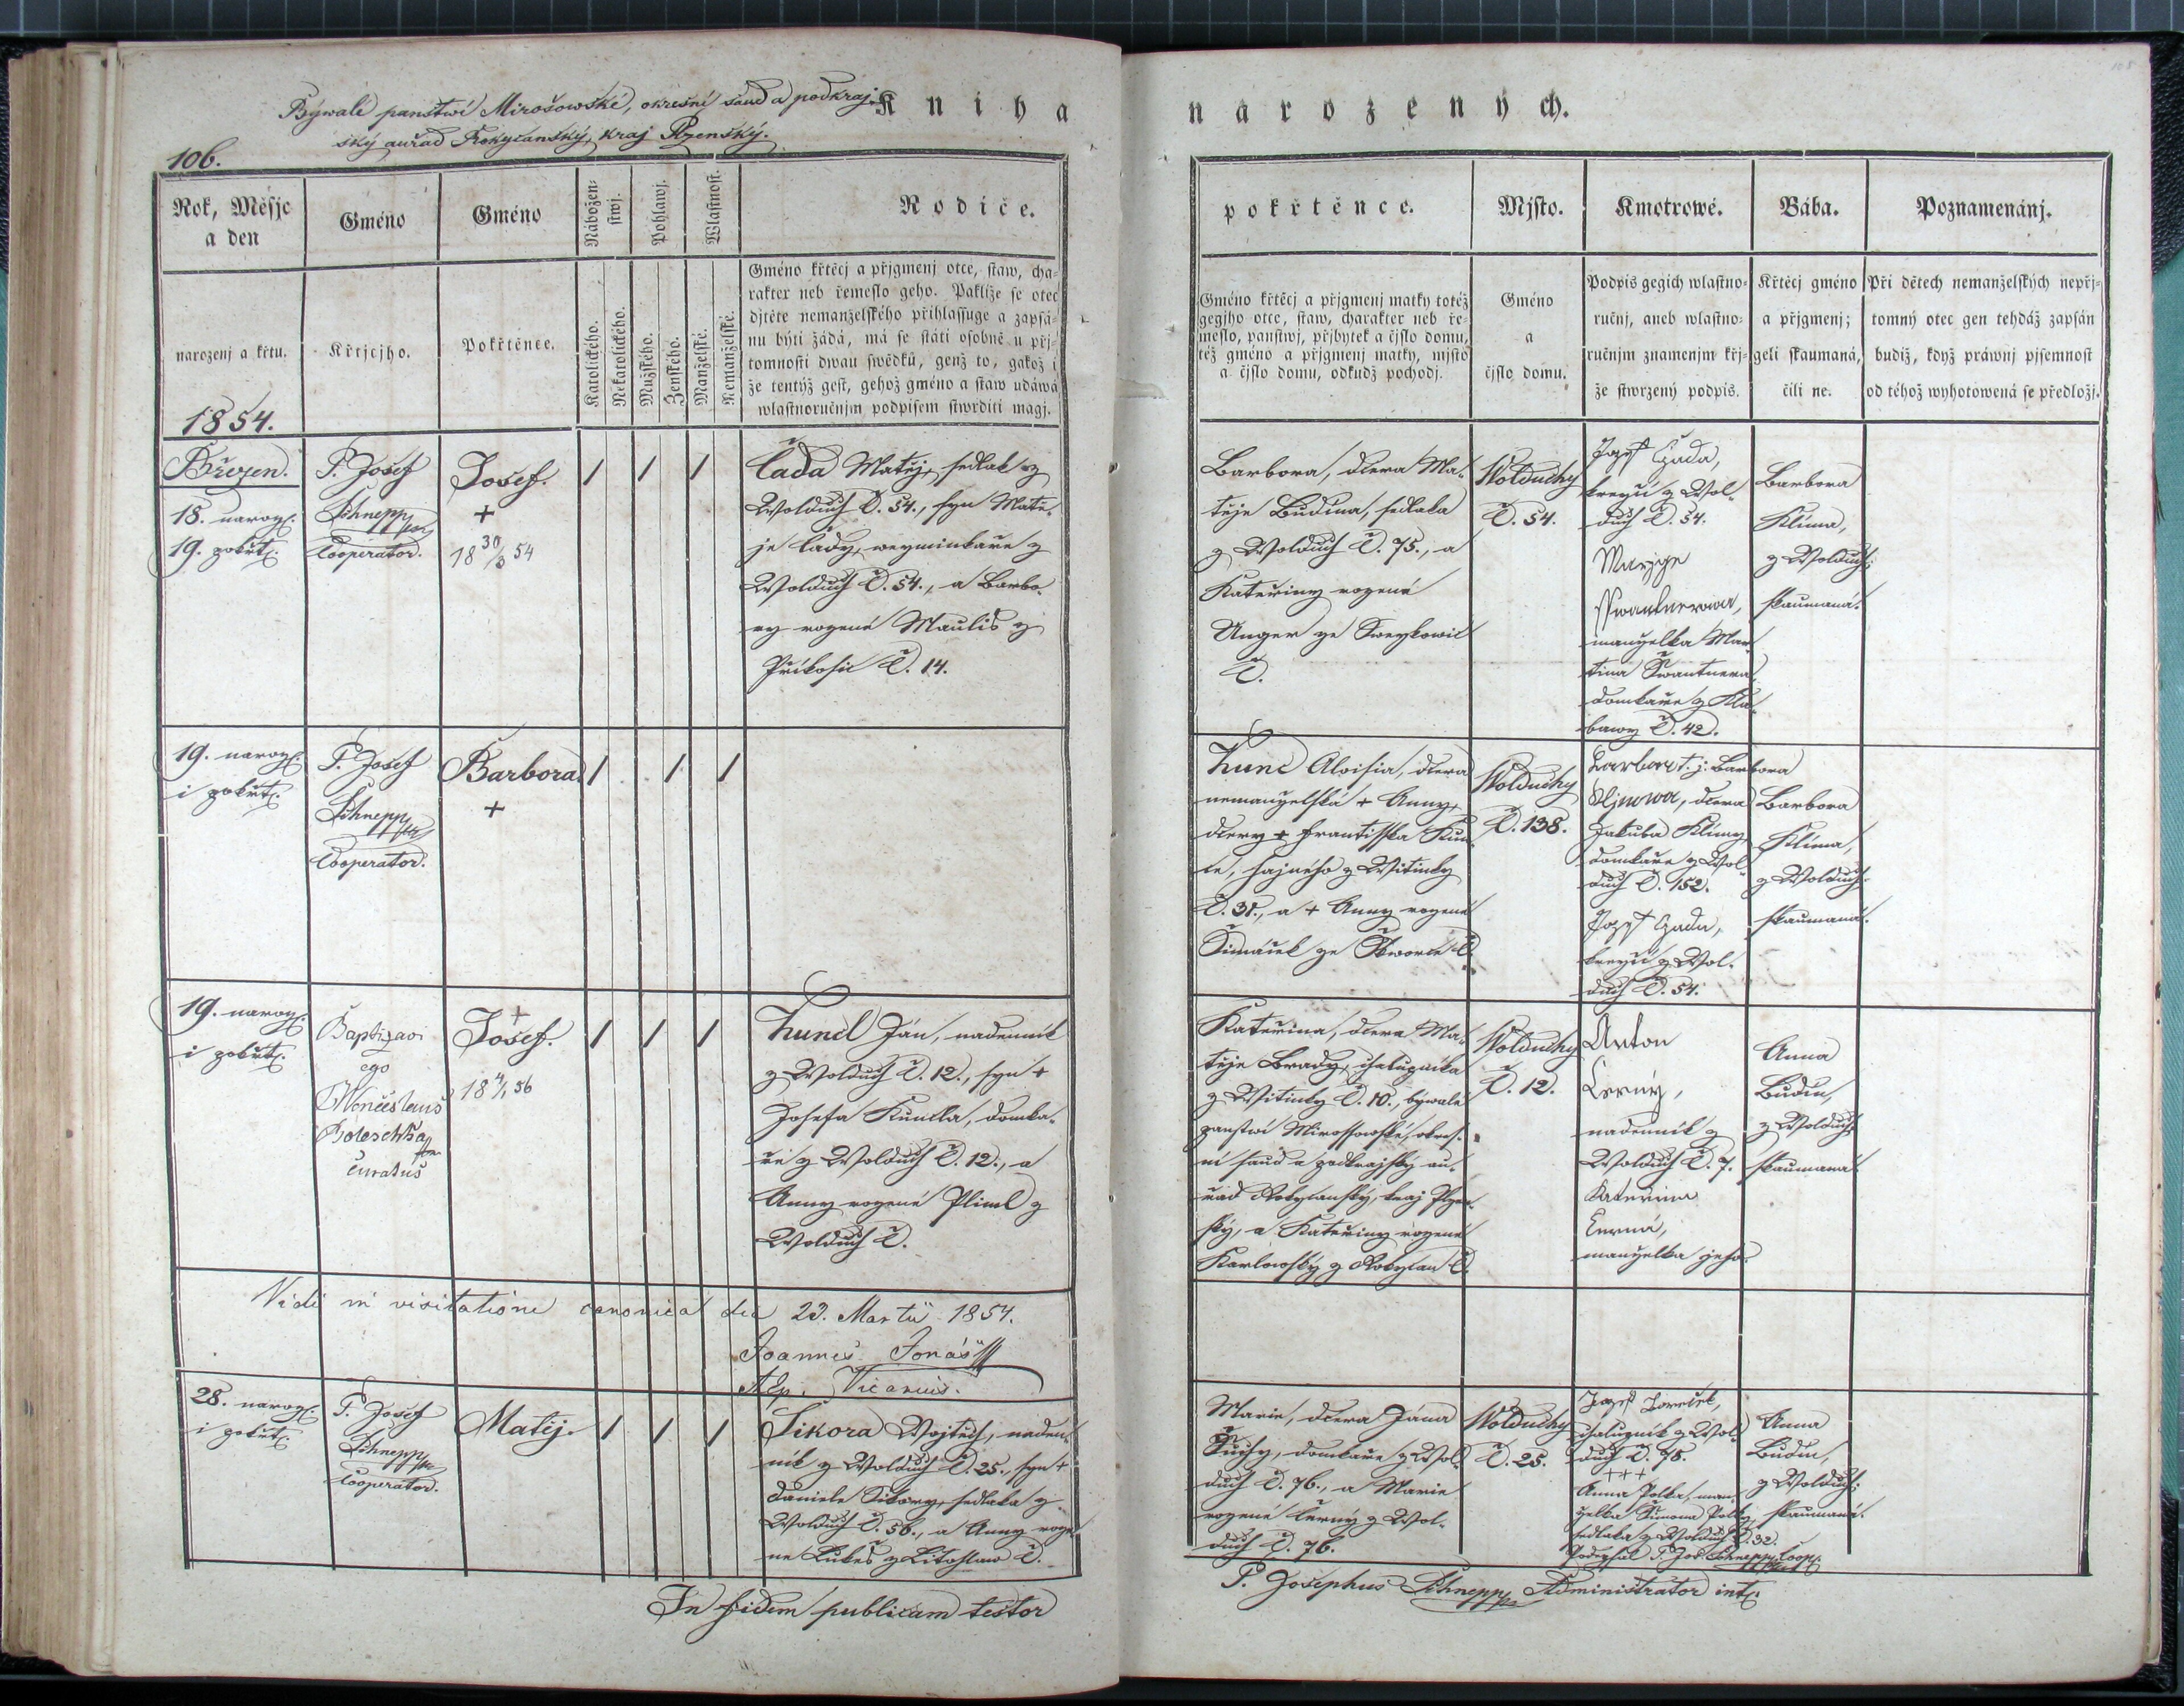 Bývalé panstwí Mirošowské, okresní saud a podkraj-
ský auřad Rokycanský, kraj Plzenský.
Kniha narozených.
106.
Rok, Měsjc
a den
narozenj a křtu.
1854.
Gméno
Křtjcjho.
Gméno
Pokřtěnce.
Nábožen-
stwj.
Katolického.
Nekatolického.
Pohlawj.
Mužského.
Ženského.
Wlastnost.
Manželské.
Nemanželské.
Rodiče.
Gméno křtěcj a přjgmenj otce, staw, cha-
rakter neb řemeslo geho. Pakliže se otec
djtěte nemanželského přihlassuge a zapsá-
nu býti žádá, má se státi osobně u přj-
tomnosti dwau swědků, genž to, gakož i
že tentýž gest, gehož gméno a staw udáwá
wlastnoručnjm podpisem stwrditi magj.
pokřtěnce.
Gméno křtěcj a přjgmenj matky totéž
gegjho otce, staw, charakter neb ře-
meslo, panstwj, přjbytek a čjslo domu,
též gméno a přjgmenj matky, mjsto
a čjslo domu, odkudž pochodj.
Mjsto.
Gméno
a
čjslo domu.
Kmotrowé.
Podpis gegich wlastno-
ručnj, aneb wlastno-
ručnjm znamenjm křj-
že stwrzený podpis.
Bába.
Křtěcj gméno
a přjgmenj;
geli skaumaná,
čili ne.
Poznamenánj.
Při dětech nemanželských nepřj-
tomný otec gen tehdáž zapsán
budiž, když práwnj pjsemnost
od téhož wyhotowená se předložj.
Březen.
18. naroz.
19. pokřt.
P. Josef
Schnepp
Cooperator.
Josef.
+
18 30/3 54
/ / /
Čada Matěj, sedlák z
Wolduch Č. 54., syn Matě-
je Čady, weyminkáře z
Wolduch Č. 54., a Barbo-
ry rozené Maulis z
Příkosic Č. 14.
Barbora, dcera Ma-
těje Budína, sedláka
z Wolduch Č. 75., a
Kateřiny rozené
Unger ze Sweykowic
Č.
Wolduchy
Č. 54.
Jozef Czada,
kreyčí z Wol-
duch Č. 54.
Maryge
Swantnerowa,
manželka Mar-
tina Šwantnera
domkáře z Kla-
bawy Č. 42.
Barbora
Klíma,
z Wolduch;
skaumaná.
19. naroz.
i pokřt.
P. Josef
Schnepp
Cooperator.
Barbora.
+
/ / /
Kunc Aloisia, dcera
nemanželská + Anny,
dcery + Frantisska Kun-
ce, hajného z Witinky
Č. 31., a + Anny rozené
Šimáček ze Skworce Č.
Wolduchy
Č. 138.
Barbora
dcera
Jakuba Klímy,
domkáře z Wol-
duch Č. 152.
Jozef Czada,
kreyčí z Wol-
duch Č. 54.
Barbora
Klíma,
z Wolduch
skaumaná.
19. naroz.
i pokřt.
Baptizavi
ego
Wenceslaus
Boleschka
curatus
+
Josef.
18 4/1 56
/ / /
Kuncl Ján, nadenník
z Wolduch Č. 12., syn +
Josefa Kuncla, domká-
ře z Wolduch Č. 12., a
Anny rozené Pliml z
Wolduch Č.
Kateřina, dcera Ma-
těje Brady, chalupníka
z Witinky Č. 10., býwalé
panstwí Mirossowské, okres-
ní saud a podkrajský au-
řad Rokycanský, kraj Plzen-
ský, a Kateřiny rozené
Karlowský z Rokycan Č.
Wolduchy
Č. 12.
Anton
Černý,
nadenník z
Wolduch Č. 7.
Kateřina
Černá,
manželka jeho.
Anna
Budín,
z Wolduch
skaumaná.
Vidi in visitatione canonica die 23. Martii 1854.
Joannes Jonáš
Vicarius.
28. naroz.
i pokřt.
P. Josef
Schnepp
Cooperator.
Matěj.
/ / /
Sikora Wojtěch, naden-
ník z Wolduch Č. 25., syn +
Daniele Sikory, sedláka z
Wolduch Č. 56., a Anny roze-
né Lukeš z Litohlaw Č.
Marie, dcera Jána
Suchy, domkáře z Wol-
duch Č. 76., a Marie
rozené Černý z Wol-
duch Č. 76.
Wolduchy
Č. 25.
Jozef
chalupník z Wol-
duch Č. 78.
+++
Anna Polka, man-
želka Šimona Polky,
sedláka z Wolduch Č. 32.
Podepsal P. Jos. Schnepp, Coop.
Anna
Budín,
z Wolduch;
skaumaná.
In fidem publicam testor
P. Josephus Schnepp Administrator int.